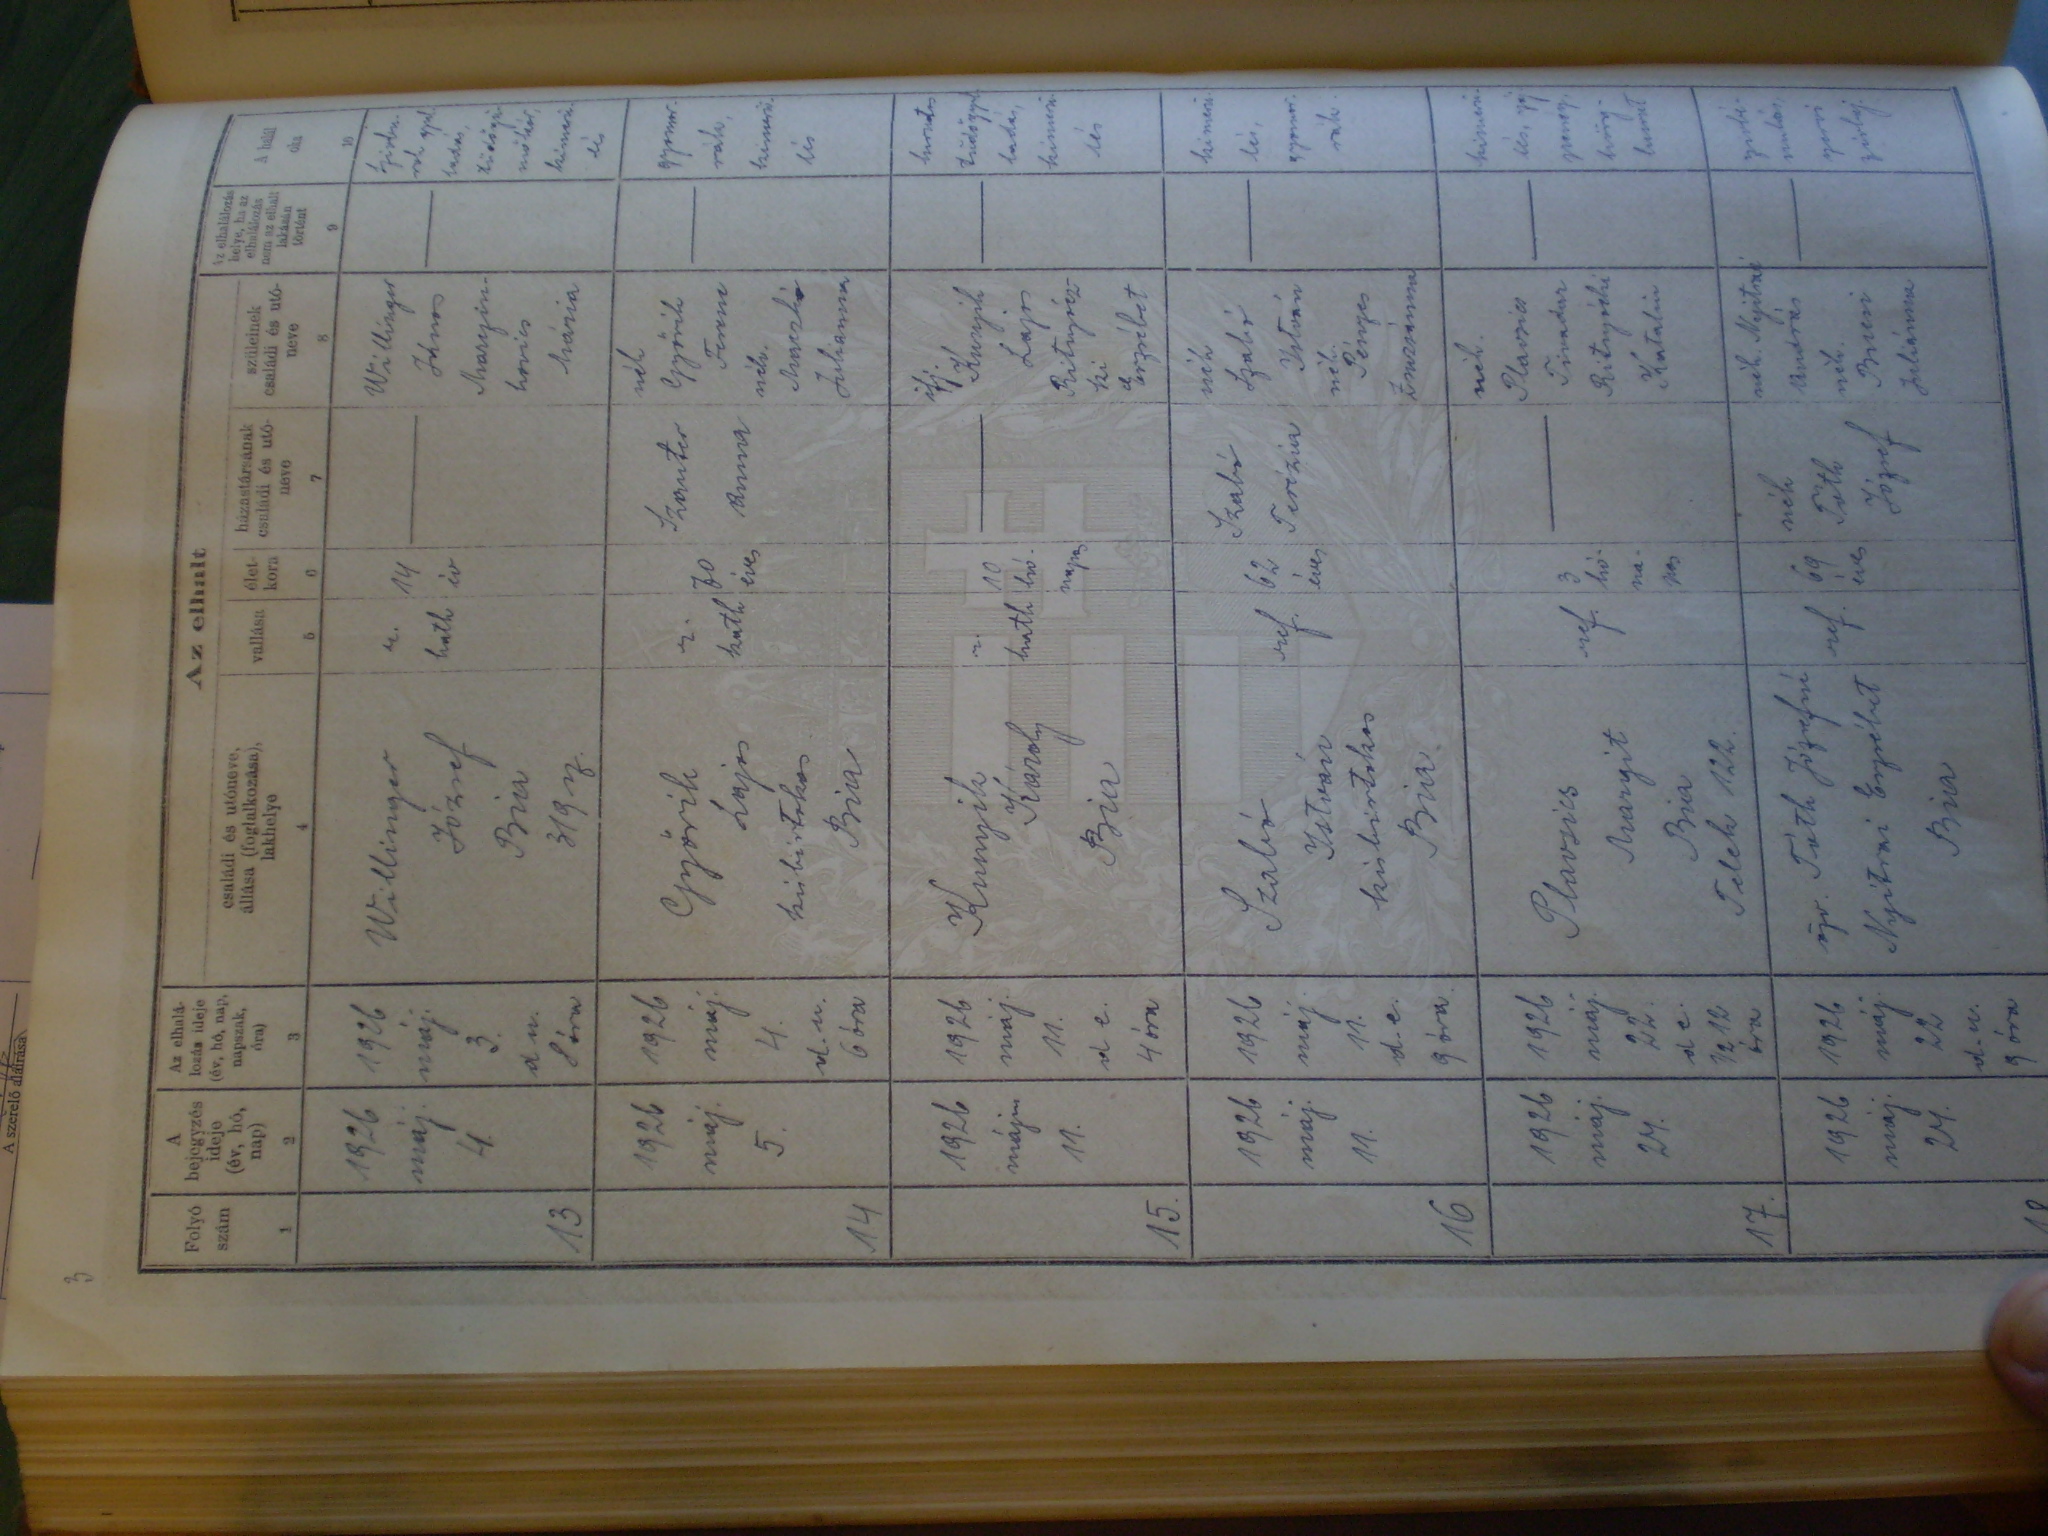 3
A szerelő aláírása
Az elhunyt
Folyó
szám
A
bejegyzés
ideje
(év, hó,
nap)
Az elhalá-
lozás ideje
(év, hó, nap,
napszak,
óra)
családi és utóneve,
állása (foglalkozása),
lakhelye
vallása
élet-
kora
házastársának
családi és utó-
neve
szüleinek
családi és utó-
neve
Az elhalálozás
helye, ha az
elhalálozás
nem az elhalt
lakásán
történt
A halál
oka
1
2
3
4
5
6
7
8
9
10
13
1926
máj.
4.
1926
máj.
3.
d u.
8 óra
Willinger
József
Bia
319 sz.
r.
kath
14
év
Willinger
János
Mária
14
1926
máj.
5.
1926
máj.
4.
d. u.
6 óra
Győrik
Lajos
kisbirtokos
Bia
r.
kath
70
éves
Szauter
Anna
néh
Győrik
Ferenc
néh.
Julianna
gyomor-
rák,
kimerü-
lés
15.
1926
11.
1926
máj.
11.
d e.
4 óra
Kunyik
Károly
Bia
r.
kath
10
hó.
napos
ifj.
Kunyik
Lajos
Erzsébet
kimerü-
lés
16
1926
máj.
11.
1926
máj.
11.
d. e.
9 óra.
Szabó
István
kisbirtokos
Bia.
ref.
62
éves
Szabó
Terézia
néh
Szabó
István
néh.
Pénzes
Zsuzsánna
kimerü-
lés,
gyomor-
rák
17.
1926
máj.
24.
1926
máj.
22.
d e.
1/2 12
óra
Plavsics
Margit
Bia
Telek 122.
ref.
3
hó-
na-
pos
néh.
Plavsics
Tivadar
Katalin
18
1926
máj.
24.
1926
máj.
22
d. u.
9 óra
özv. Tóth Józsefné
Nyitrai Erzsébet
Bia
ref.
69
éves
néh
Tóth
József
néh. Nyitrai
András
néh.
Juliánna